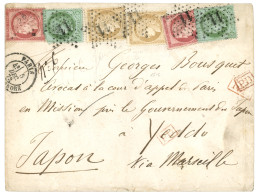 Monsieur Georges Bousquet
Avocat à la cour d'appel de Paris
en Mission par le Gouvernement du Japon
à Yeddo
Japon
Via Marseille
PARIS